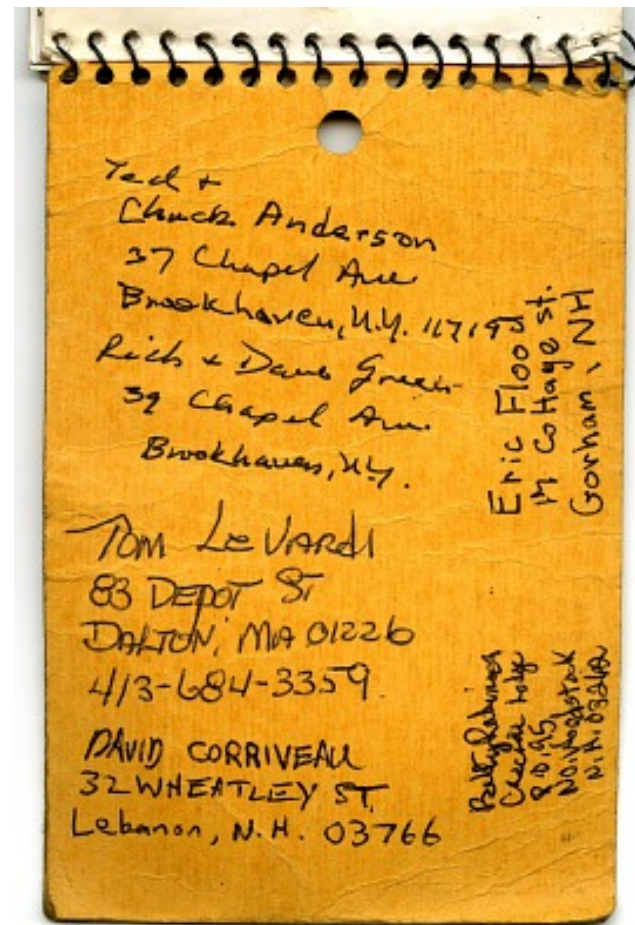 Ted +
Chuck Anderson
37 Chapel Ave
Brookhaven, N.Y. 11719
Rich + Dave Green
39 Chapel Ave.
Brookhaven, N.Y.
Tom LeVardi
83 DEPOT ST
DALTON, MA 01226
413-684-3359
DAVID CORRIVEAU
32 WHEATLEY ST.
Lebanon, N.H. 03766
Eric Flood
Cottage St.
Gorham, NH
Lodge
N.H.